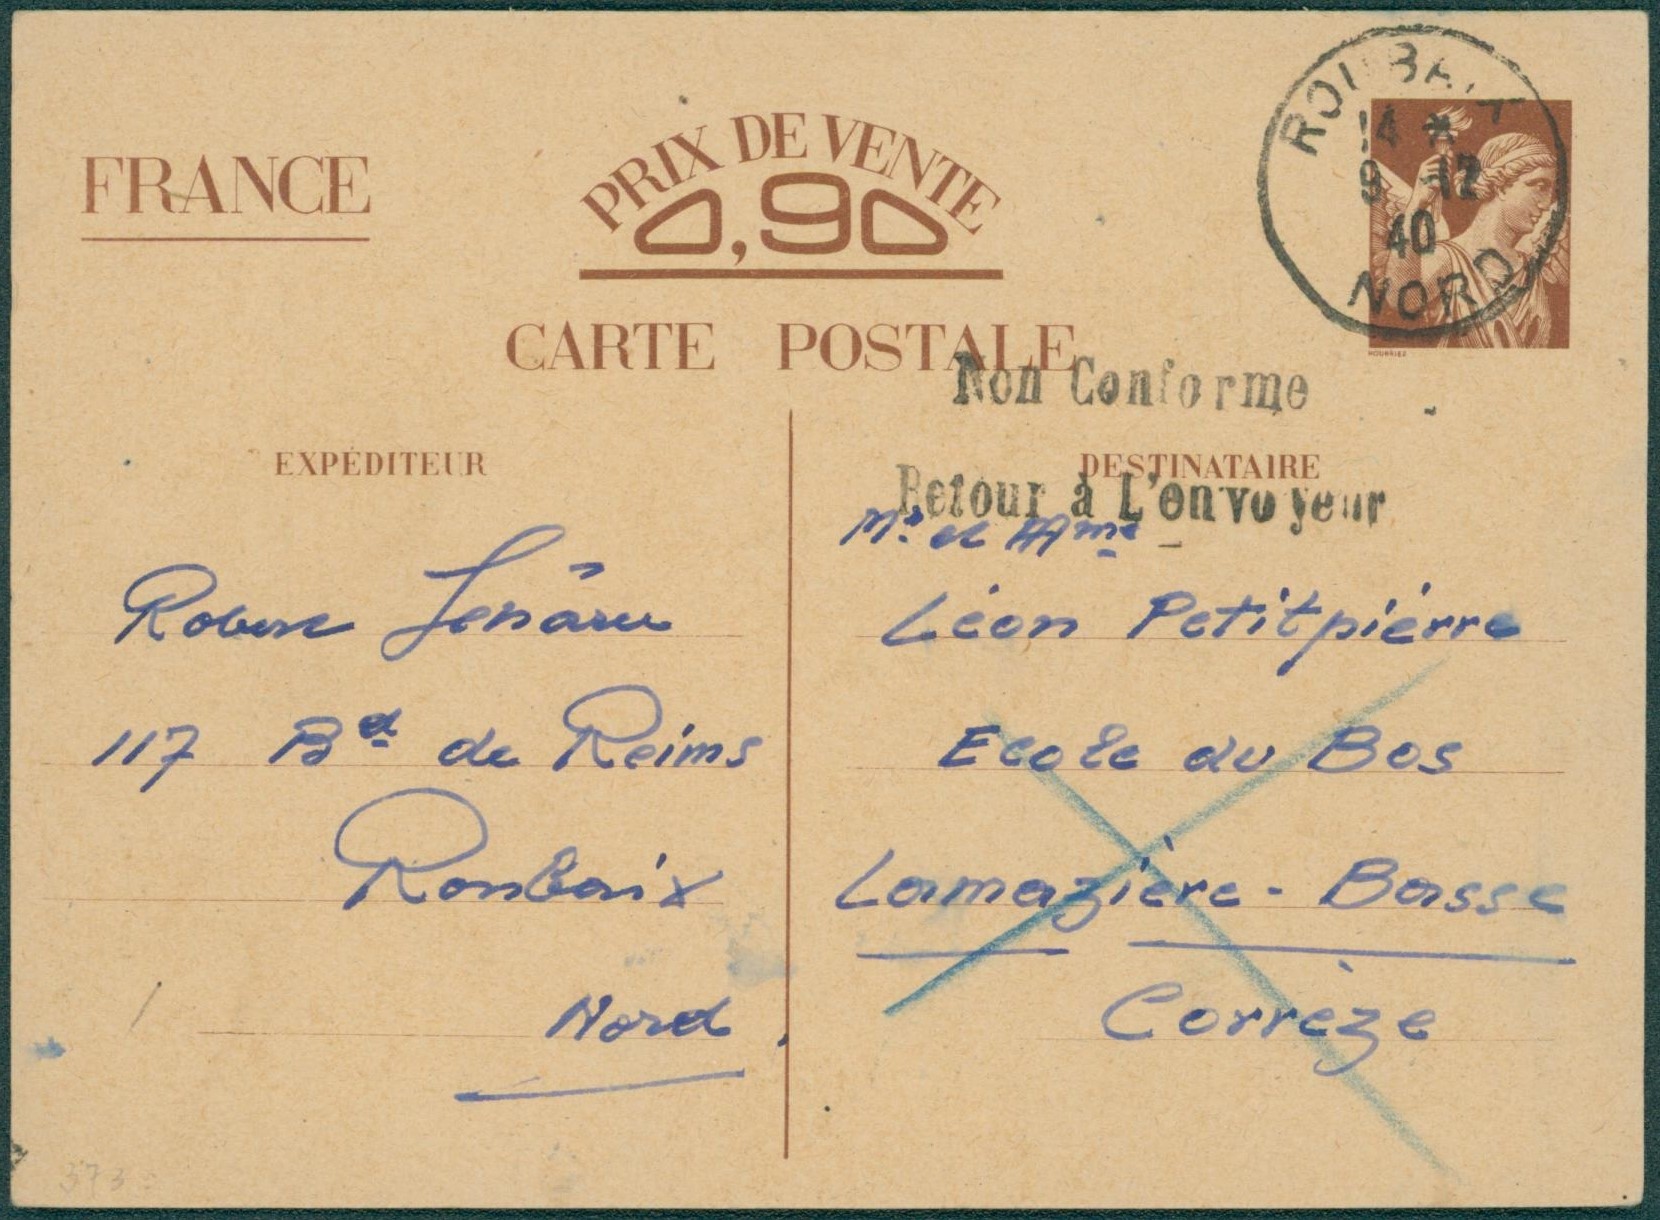 FRANCE
PRIX DE VENTE
0,90
ROUBAIX
14 *
9 12
40
NORD
HOURRIEZ
CARTE POSTALE
Non Conforme
EXPÉDITEUR
DESTINATAIRE
Retour à L'envoyeur
Mr et Mme
Robert
Léon Petitpiérre
117 Bd de Reims
Ecole du Bos
Roubaix
Lamazière-Basse
Nord
Corrèze
373